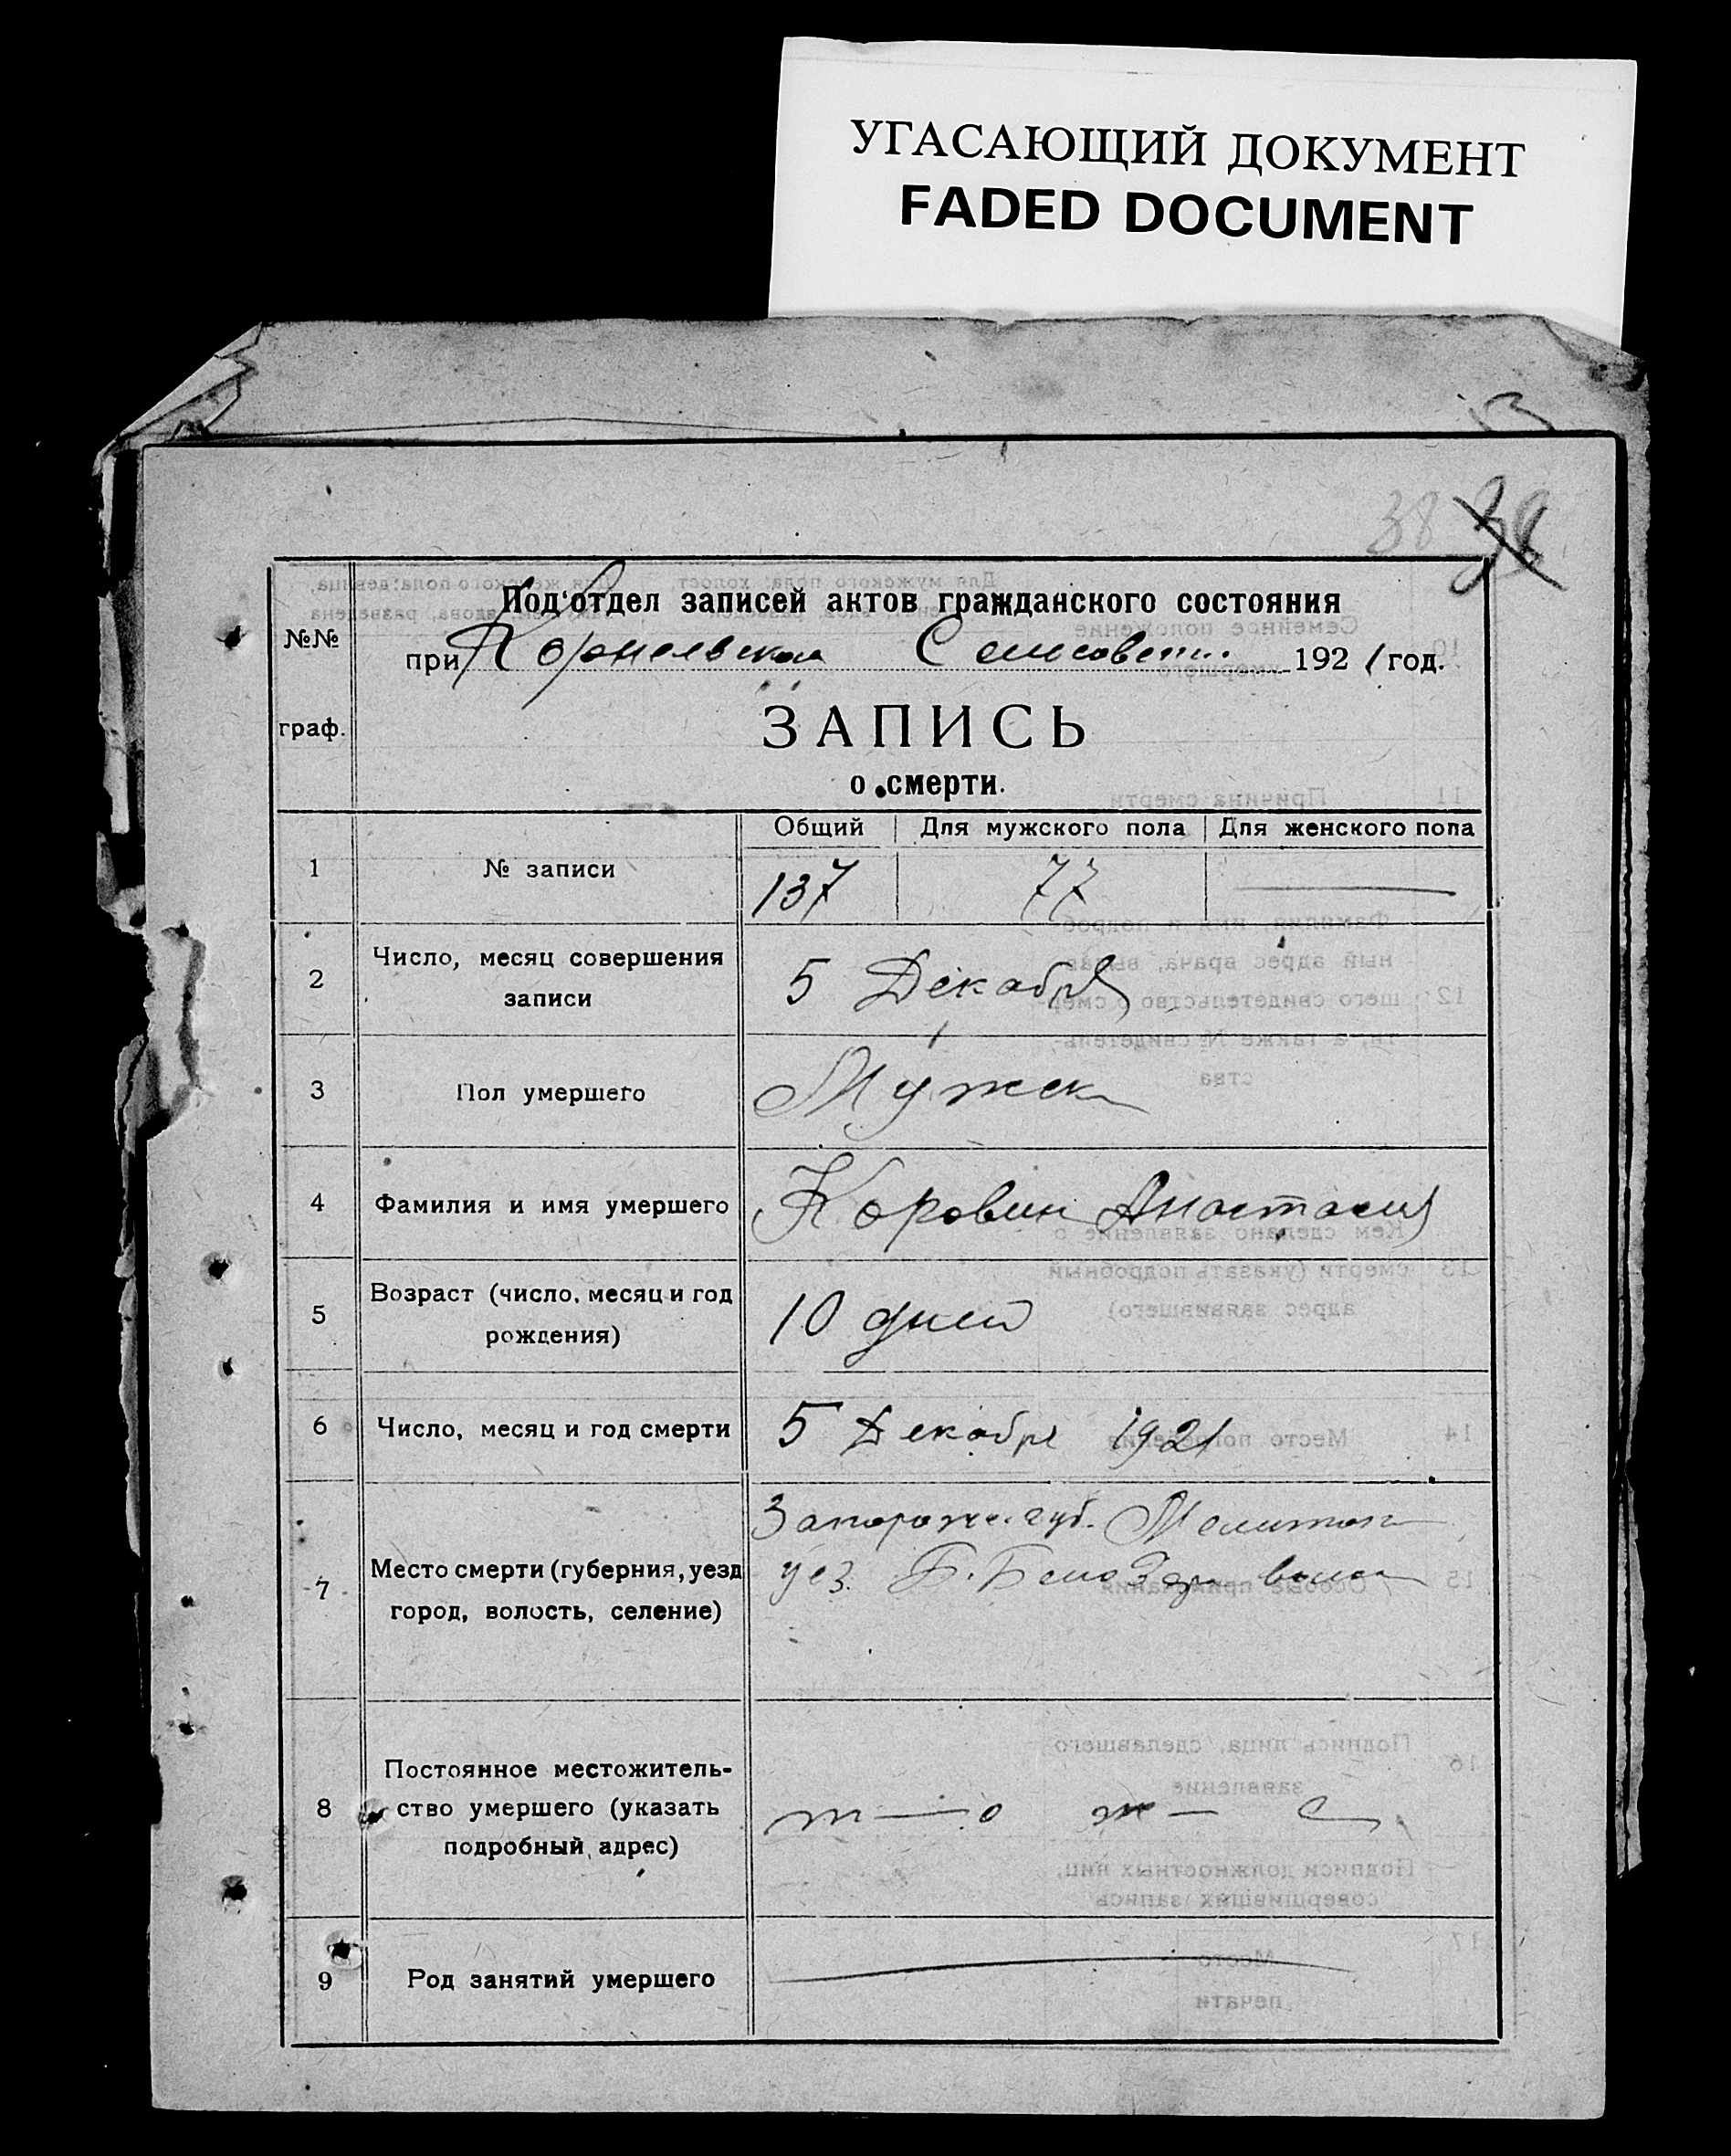 УГАСАЮЩИЙ ДОКУМЕНТ
FADED DOCUMENT
38
№№
граф.
Под'отдел записей актов гражданского состояния
при Сельсовети 1921 год.
ЗАПИСЬ
о смерти.
Общий Для мужского пола Для женского пола
1 № записи 137 77
2 Число, месяц совершения
записи
5 Декабря
3 Пол умершего Мужск
4 Фамилия и имя умершего Коровин Анастасия
5 Возраст (число, месяц и год
рождения)
10 дней
6 Число, месяц и год смерти 5 Декабря 1921
7 Место смерти (губерния, уезд
город, волость, селение)
Запорожс. губ. Мелитоп
уез. Б. Белозер волос
8 Постоянное местожитель-
ство умершего (указать
подробный адрес)
т—о ж— е
9 Род занятий умершего